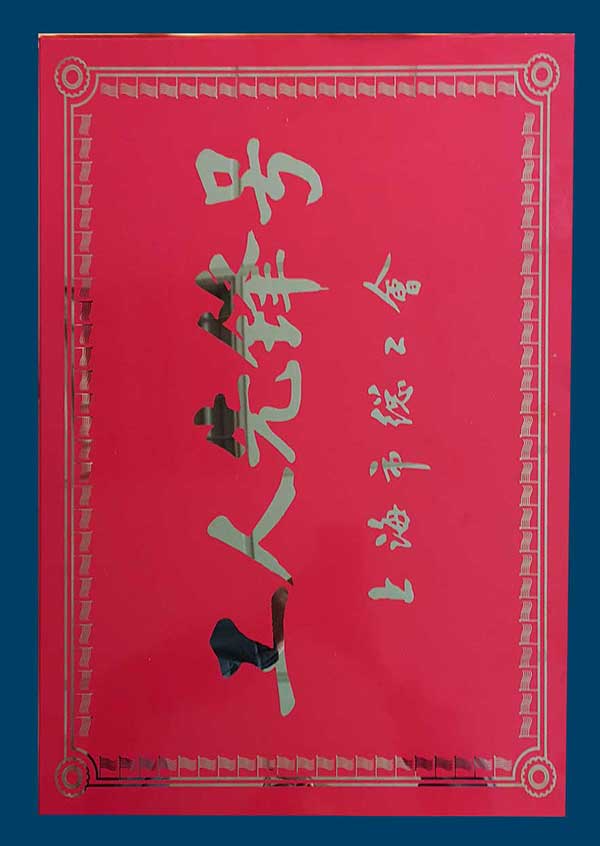 工人先锋号
上海市总工會